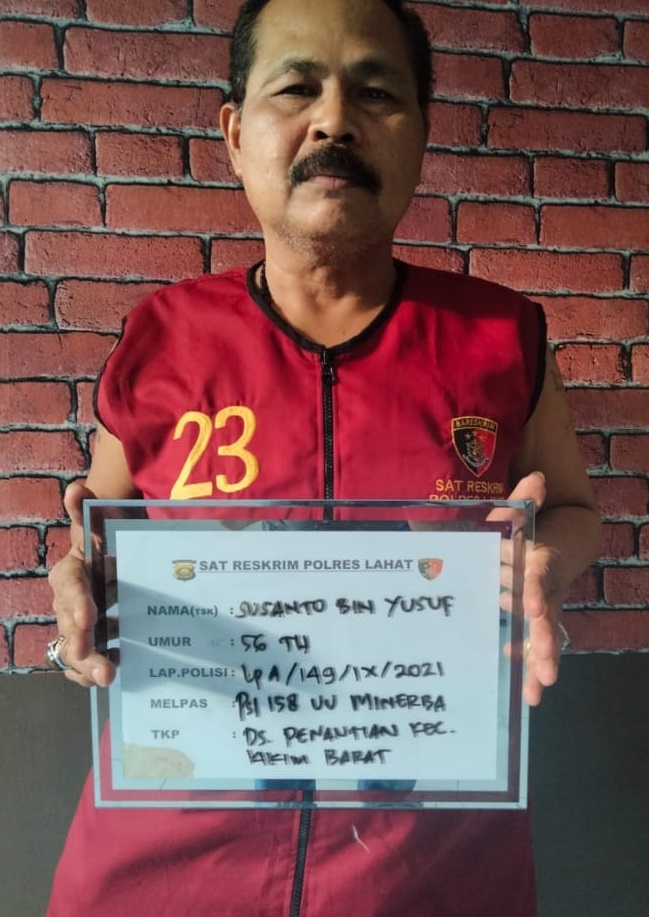 23
BARESKRIM
SAT RESKRIM
POLRES
SAT RESKRIM POLRES LAHAT
NAMA(TSK) : SUSANTO BIN YUSUF
UMUR : 56 TH
LAP.POLISI : LpA/149/IX/2021
MELPAS : PSl 158 UU MINERBA
TKP : DS. PENANTIAN KEC.
KIKIM BARAT